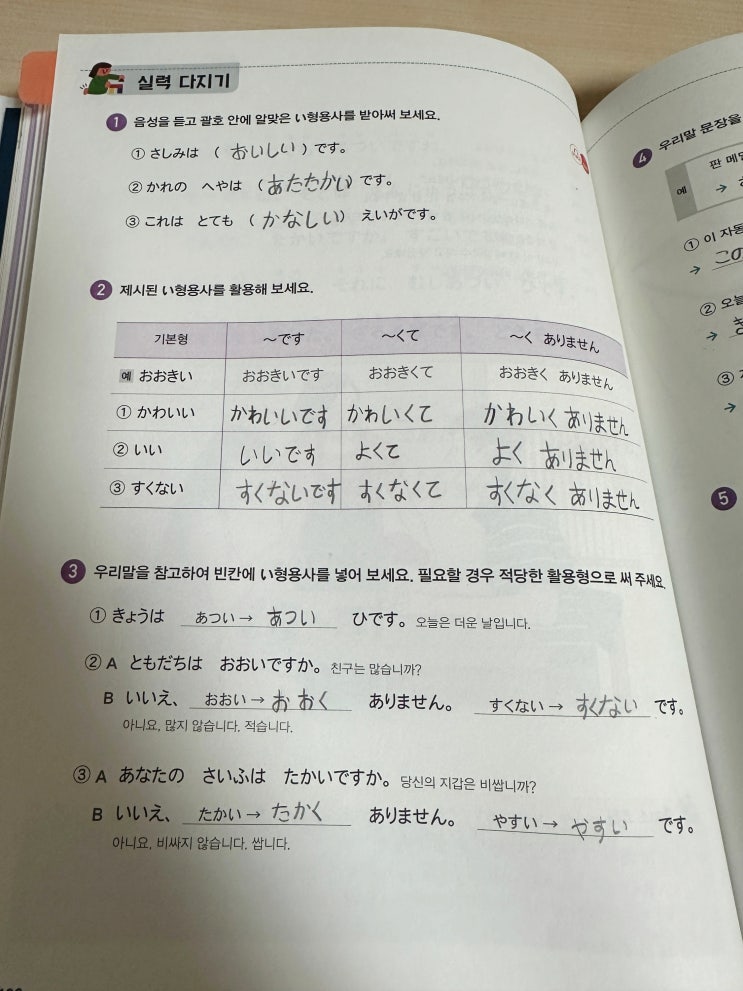 실력 다지기
1 음성을 듣고 괄호 안에 알맞은 い형용사를 받아써 보세요.
① さしみは ( おいしい ) です。
② かれの へやは ( あたたかい ) です。
③ これは とても ( かなしい ) えいがです。
2 제시된 い형용사를 활용해 보세요.
기본형 ～です ～くて ～く ありません
예 おおきい おおきいです おおきくて おおきく ありません
① かわいい かわいいです かわいくて かわいく ありません
② いい いいです よくて よく ありません
③ すくない すくないです すくなくて すくなく ありません
3 우리말을 참고하여 빈칸에 い형용사를 넣어 보세요. 필요할 경우 적당한 활용형으로 써 주세요.
① きょうは あつい → あつい ひです。 오늘은 더운 날입니다.
② A ともだちは おおいですか。 친구는 많습니까?
B いいえ、 おおい → おおく ありません。 すくない → すくない です。
아니요, 많지 않습니다. 적습니다.
③ A あなたの さいふは たかいですか。 당신의 지갑은 비쌉니까?
B いいえ、 たかい → たかく ありません。 やすい → やすい です。
아니요, 비싸지 않습니다. 쌉니다.
4 우리말 문장을
예
→
① 이 자동
→ この
② 오늘
→ き
③
→
5